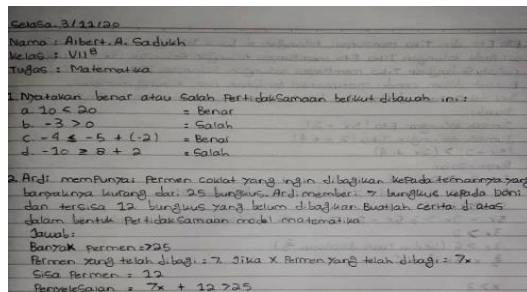 Selasa. 3/11/20
Nama : Albert. A. Sadukh
Kelas : VII B
Tugas : Matematika
1. Nyatakan benar atau Salah Pertidaksamaan berikut dibawah ini:
a. 10 < 20 = Benar
b. -3 > 0 = Salah
c. -4 ≤ -5 + (-2) = Benar
d. -10 ≥ 8 + 2 = Salah
2. Ardi mempunyai Permen coklat yang ingin dibagikan kepada temannya yang
banyaknya kurang dari 25 bungkus. Ardi memberi 7 bungkus kepada Doni
dan tersisa 12 bungkus yang belum dibagikan Buatlah cerita diatas
dalam bentuk Pertidaksamaan model matematika
Jawab:
Banyak permen =>25
Permen yang telah dibagi = 7. Jika x Permen yang telah dibagi = 7x
Sisa Permen = 12
Penyelesaian = 7x + 12 >25